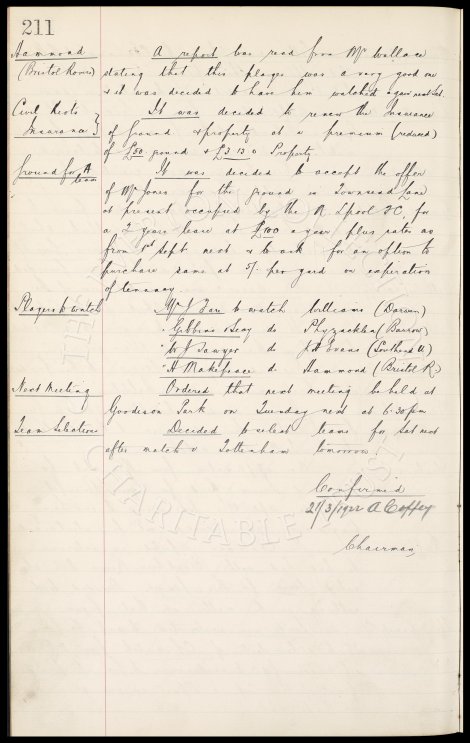 211
Hammond
(Bristol Rovers)
A report was read from Mr Wallace
stating that this player was a very good one
& it was decided to have him watched again next Sat.
Civil Riots
Insurance
It was decided to renew the Insurance
of Ground & property at a premium (reduced)
of £50 ground & £3.13.0 Property
Ground for A
team
It was decided to accept the offer
of Mr for the ground in Townsend Lane
at present occupied by the N. Lpool FC, for
a 2 years lease at £100 a year, plus rates as
from 1st Sept next & to ask for an option to
purchase same at 5/- per yard on expiration
of tenancy.
Players to watch
Mr J Fare to watch Williams (Darwen)
" Gibbins & do Phyzacklea (Barrow)
" W J Sawyer do J H Evans (Southend U)
" H Makepeace do Hammond (Bristol R.)
Next Meeting
Ordered that next meeting be held at
Goodison Park on Tuesday next at 6.30pm
Team Selection
Decided to select teams for Sat next
after match v Tottenham tomorrow.
Confirmed
21/3/1922 A Coffey
Chairman
CHARITABLE